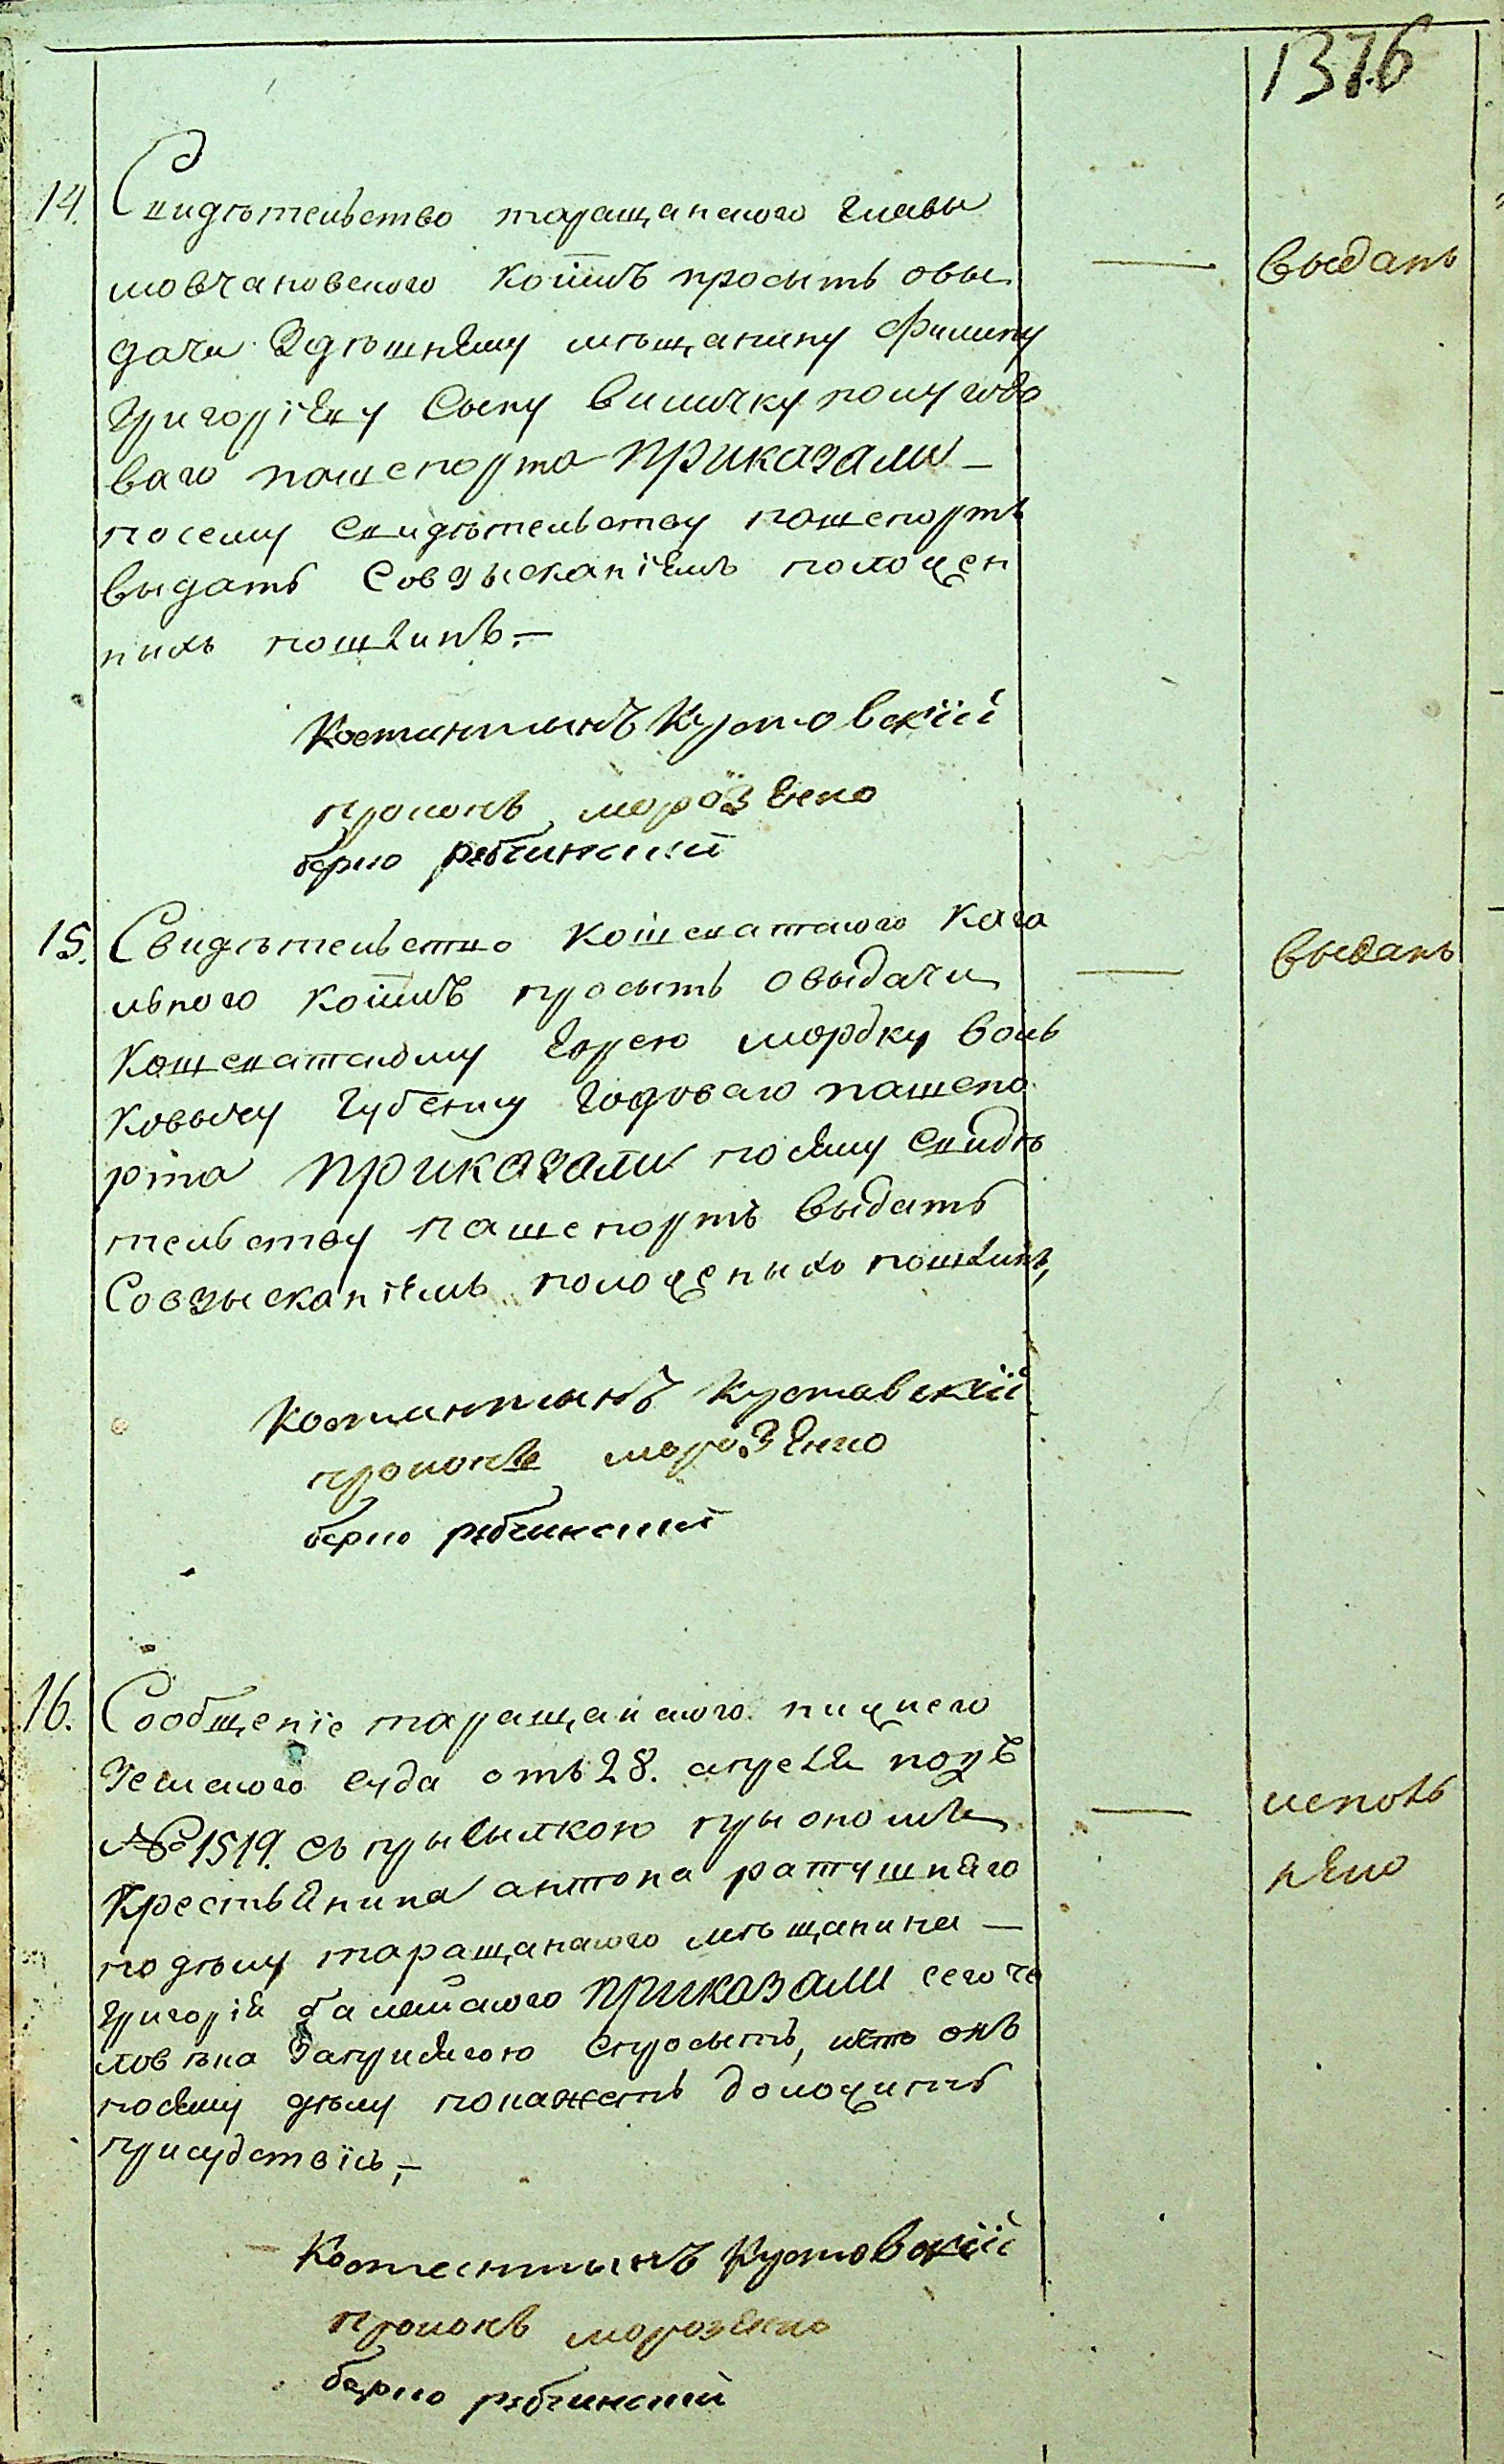 1376
14. Свидѣтельство таращанского главы
мовчановского коимъ просытъ овы
дачи здѣшнему мѣщанину Филипу
Григоріеву сыну Виличку полугодо
ваго пашепорта приказали —
посему свидѣтельству пашепортъ
выдать совзысканіемъ положен
ныхъ пошлинъ. —
выданъ
Костантынъ Кустовскій
прокопъ морозенко
берко рабчинский
15. Свидѣтельство кошеватского кага
льного коимъ просытъ овыдачи
кошеватскому еврею мордку воль
ковычу губенку годоваго пашепо
рта приказали посему свидѣ
тельству пашепортъ выдать
совзысканіемъ положеныхъ пошлинъ,
выданъ
Костантынъ Кустовскій
прокопъ морозенко
берко рабчинский
16. Сообщеніе таращанского нижнего
земского суда отъ 28. апреля подъ
№ 1519. съ прысылкою прыономъ
крестьянина антона ратушняго
подѣлу таращанского мѣщанина —
григорія приказали сего че
ловѣка заприсягою спросыть, и что онъ
посему дѣлу покажетъ доложить
присудствію, —
исполь
нено
Костантынъ Кустовскій
прокопъ морозенко
берко рабчинский